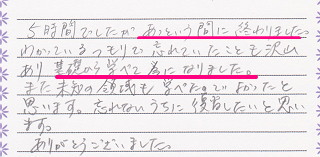 5時間でしたが あっという間に終わりました。
わかっているつもりで忘れていたことも沢山
あり 基礎から学べて為になりました。
また未知の領域も学べたのでよかったと
思います。忘れないうちに復習したいと思い
ます。
ありがとうございました。